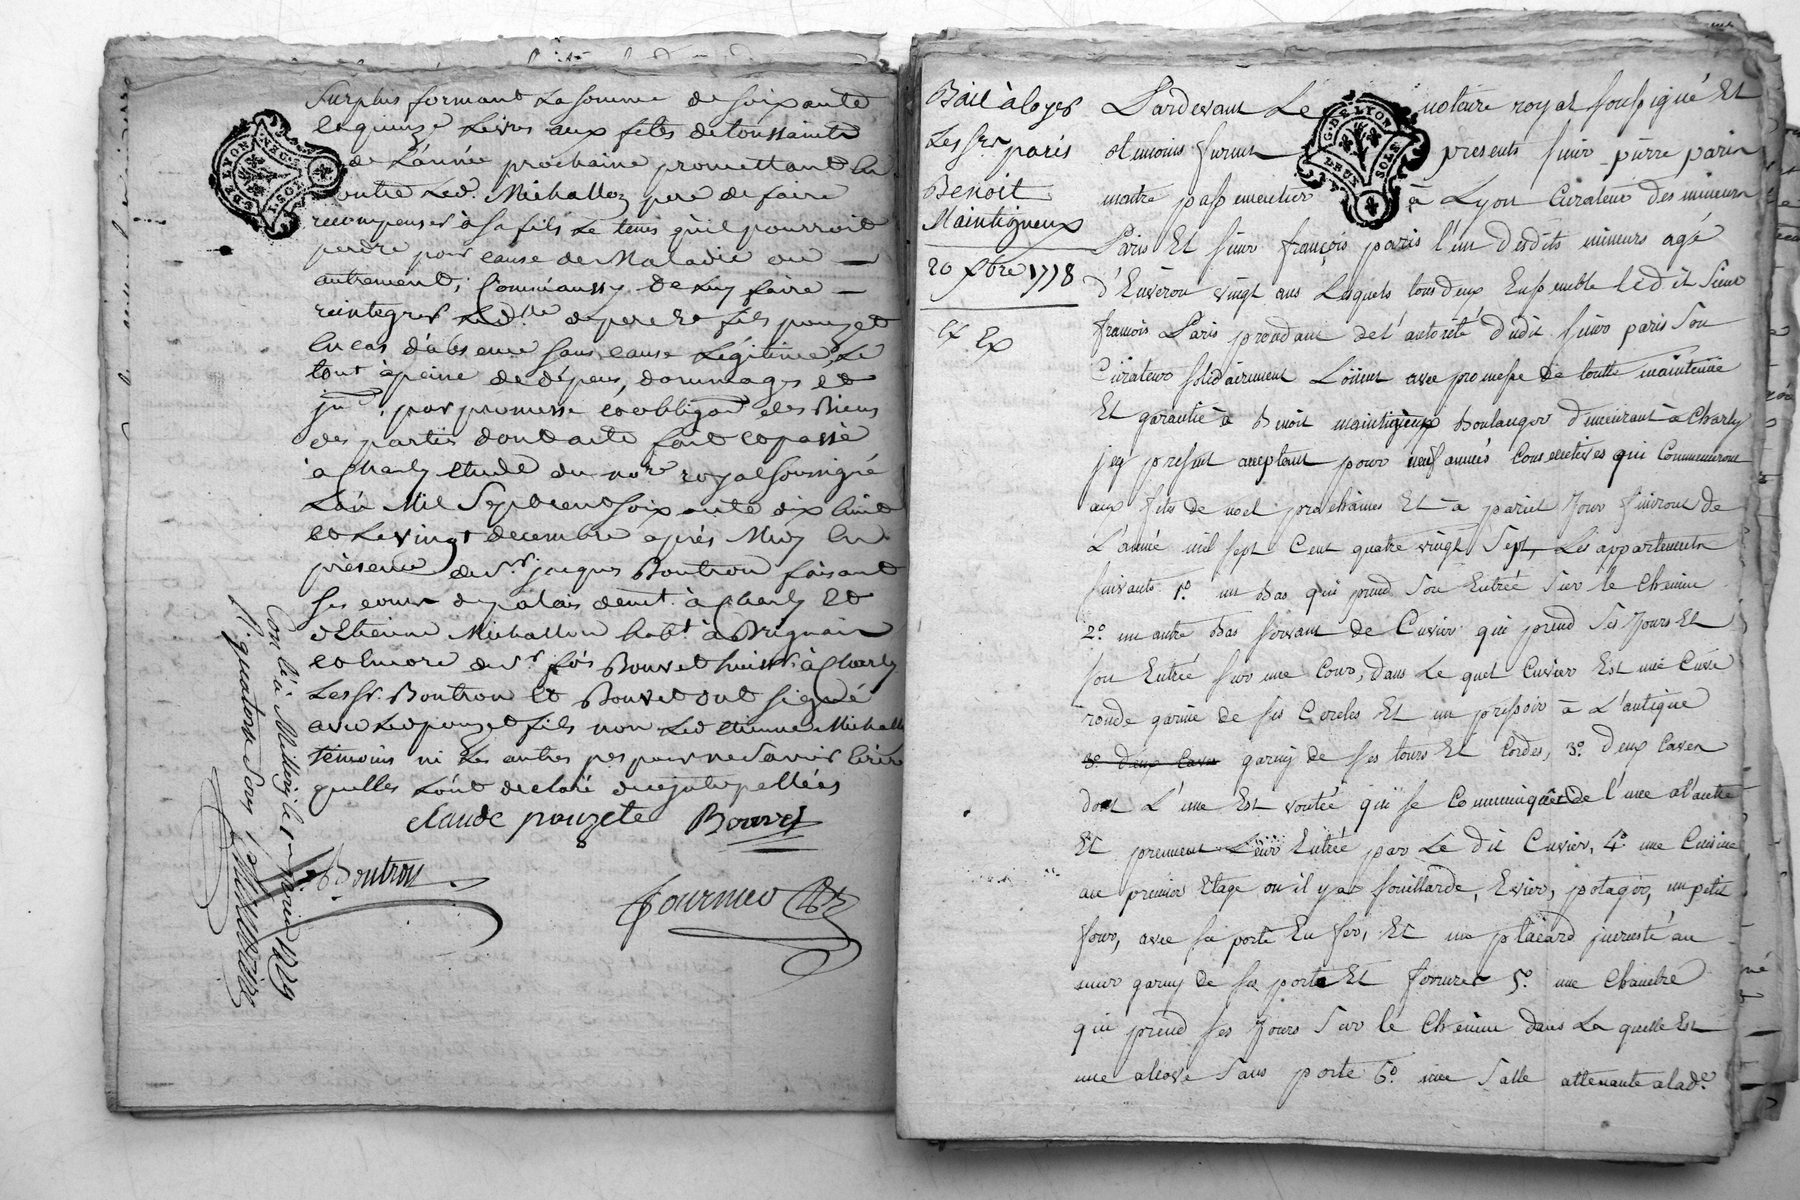 Surplus formant La somme de soixante
et quinze Livres aux fetes de toussaints
de L'année prochaine promettant En
outre Led. Michallon pere de faire
recompenser à sa fils Le tems qu'il pourroit
perdre pour cause de Maladie ou
autrement, Comm'aussy de luy faire
reintegrer Led. pere et fils pouzet
En cas d'absence sans cause Légitime, Le
tout à peine de dépens, dommages et
par promesse et obligaon des Biens
des parties dont acte fait et passé
à Charly etude du nore royal soussigné
L'an Mil Sept cent soixante dix huit
et Le vingt decembre après Midy En
présence de sr. jacques Boutron faisant
ses cours de palais demt. à Charly et
d'Etienne Michallon habt. à Brignais
et Encore de sr. fois Bouvet huissr. à Charly
Les Sr. Boutron et Bouvet ont signé
avec Led pouzet fils non Led etienne Michall
témoins ni Les autres parties pour ne savoir écrire
quelles L'ont declaré de ce interpellées
claude pouzete Bouvet
Boutron
Fournier
Conlé à Millery le 1779
R quatorze Sous
G. DE LYON
DEUX SOLS
Bail à loyer
Les Srs. paris
Benoit
Maintigneux
20 Xbre 1778
Ex Ex
Pardevant Le notaire royal soussigné Et
temoins furent presents sieur pierre paris
maitre passementier à Lyon Curateur des mineurs
Paris Et sieur françois paris l'un desdits mineurs agé
d'Environ vingt ans Lesquels tous deux Ensemble ledit Sieur
francois Paris procedant de l'autorité dudit sieur paris son
Curateur solidairement Loüent avec promesse de toutte maintenüe
Et garantie à Benoit maintigneux Boulanger demeurant à Charly
jcy present acceptant pour neuf années Consecutives qui Commenceront
aux fetes de noel prochaines Et à pareil Jour finiront de
L'année mil sept Cent quatre vingt Sept, Les appartements
suivants 1o. un Bas qui prend Son Entrée Sur le Chemin
2o. un autre Bas servant de Cuvier qui prend Ses Jours Et
son Entrée sur une Cour, dans Le quel Cuvier Est une Cuve
ronde garnie de ses Cercles Et un pressoir à L'antique
3o. deux Caves garny de ses tours Et Cordes, 3o. deux Caves
dont L'une Est voutée qui se Communiquent de l'une a l'autre
Et prennent Leur Entrée par Le dit Cuvier, 4o. une Cuisine
au premier Etage ou il y a souillarde, Evier, potager, un petit
four, avec sa porte En fer, Et un placard incrusté au
mur garny de ses porte Et ferrures 5o. une Chambre
qui prend ses Jours Sur le Chemin dans La quelle Est
une alcove Sans porte 6o. une Salle attenante a lade.